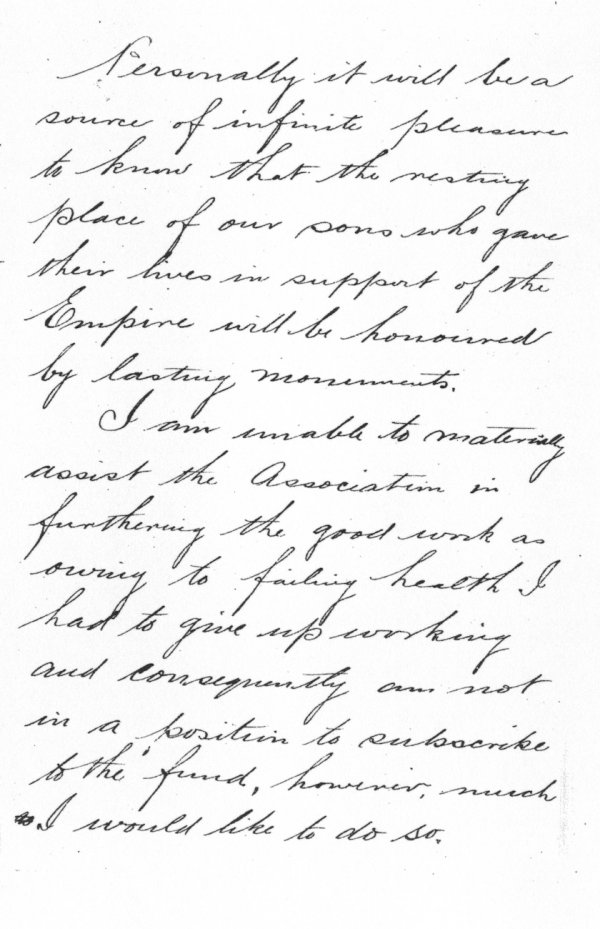 Personally it will be a
source of infinite pleasure
to know that the resting
place of our sons who gave
their lives in support of the
Empire will be honoured
by lasting monuments.
I am unable to materially
assist the Association in
furthering the good work as
owing to failing health I
had to give up working
and consequently am not
in a position to subscribe
to the fund, however, much
as I would like to do so.